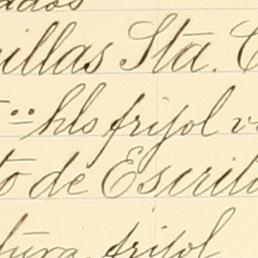 ados
illas Sta. C
hls frijol v
to de Escrit
tura frijol